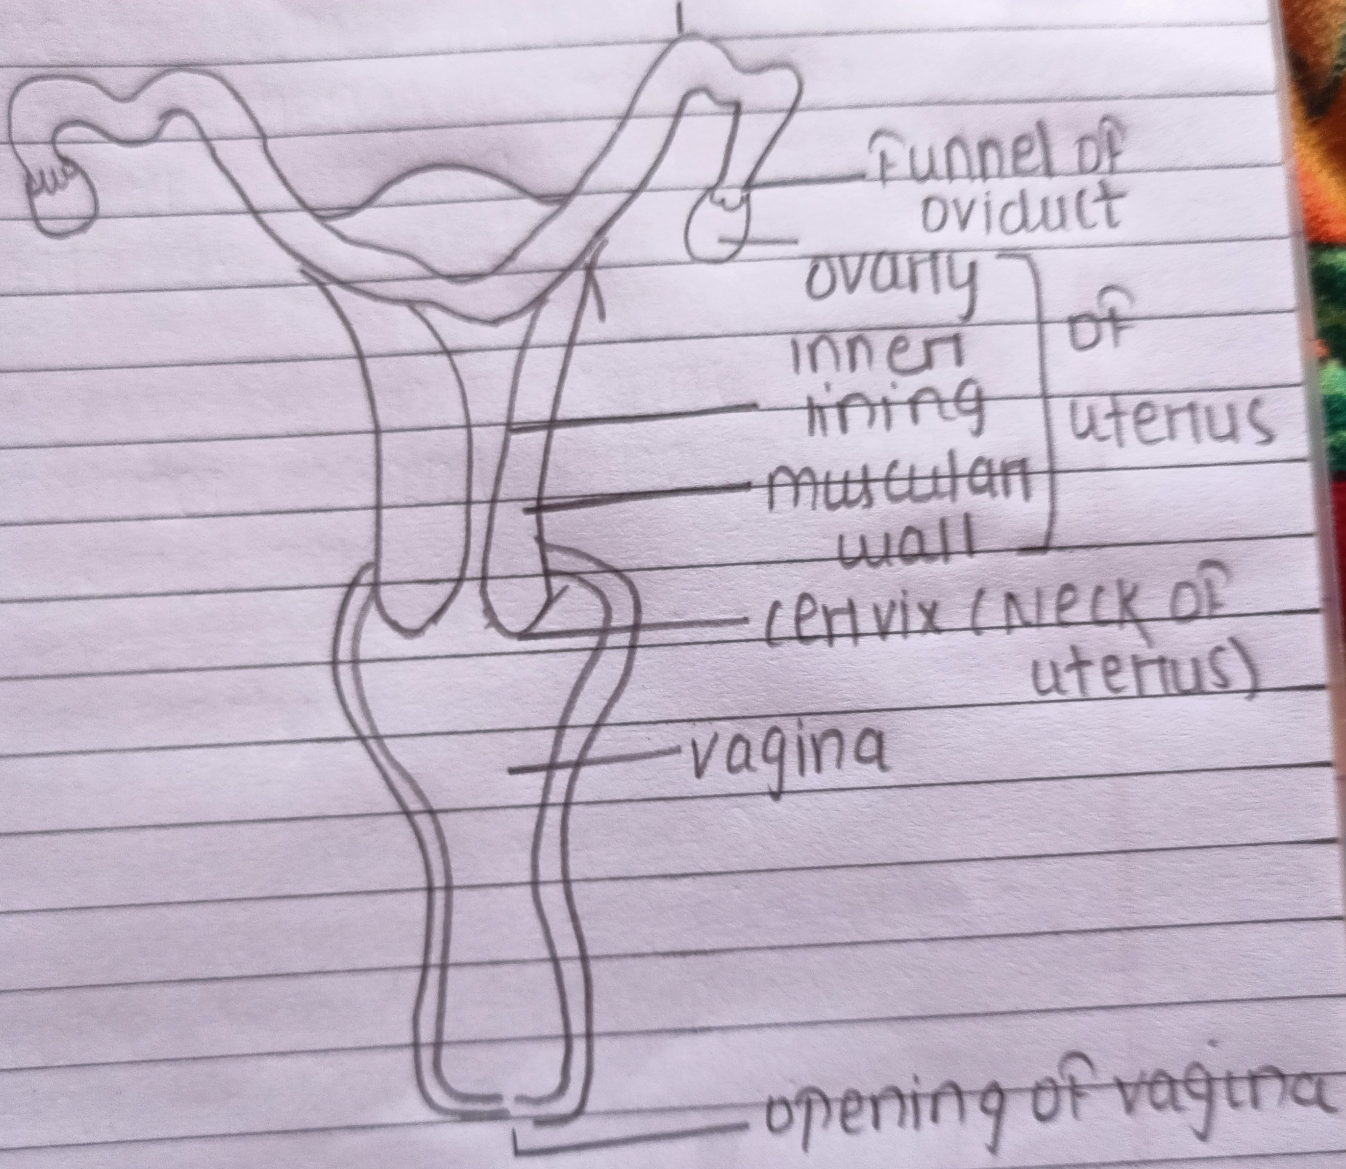 Funnel of
oviduct
ovary
inner
lining
of
uterus
muscular
wall
cervix (Neck of
uterus)
vagina
opening of vagina